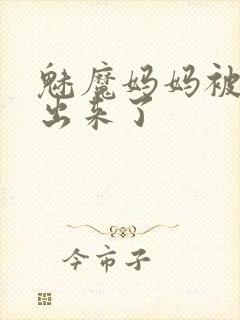 魅魔妈妈被
出来了
今市子